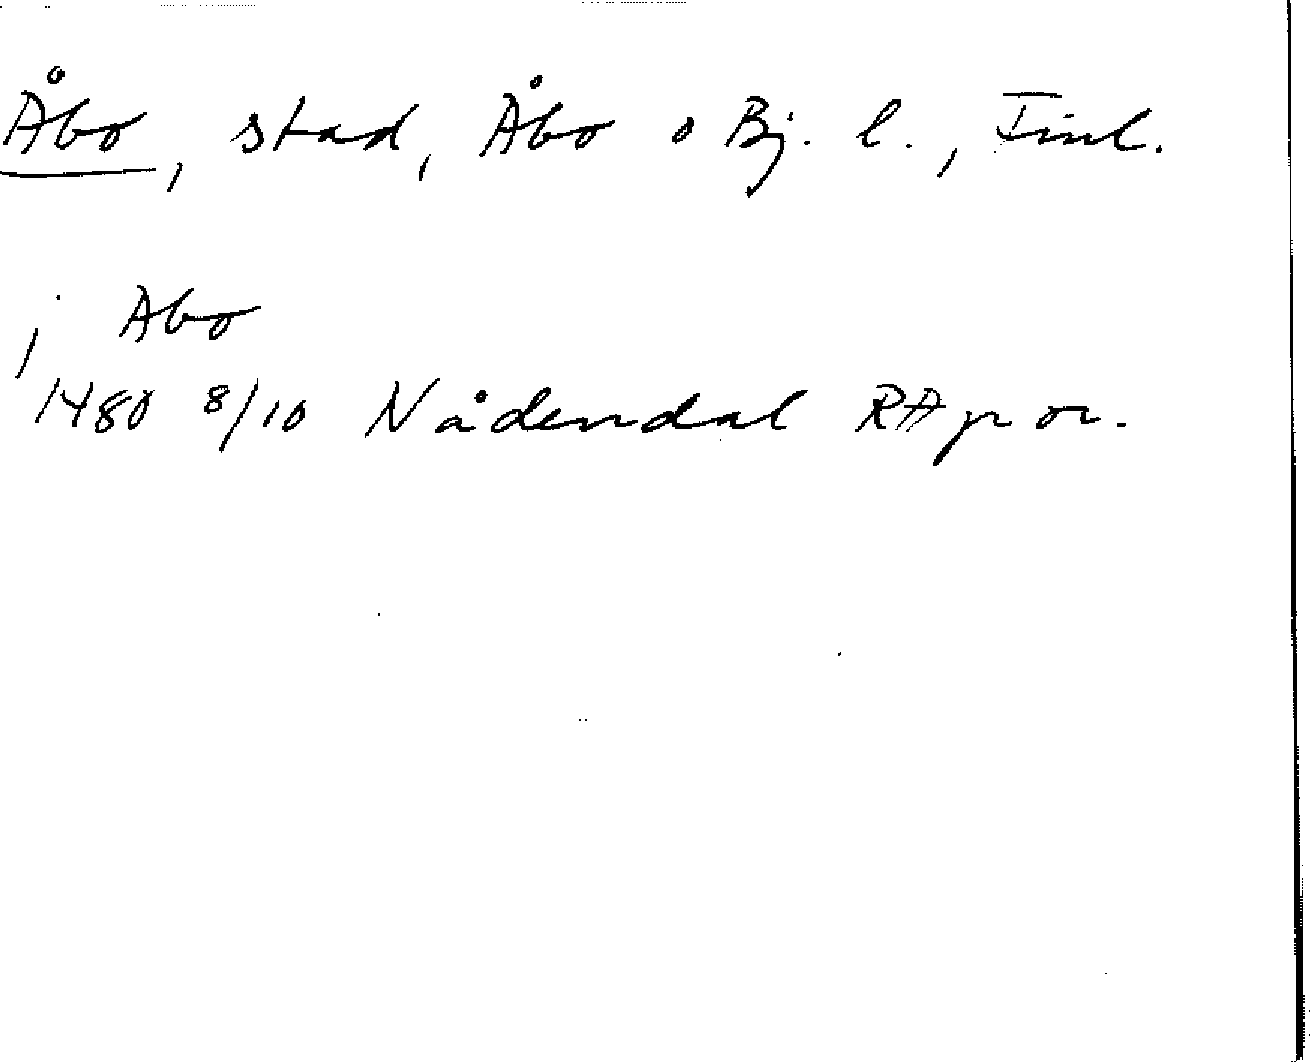 Åbo, stad, Åbo o Bj. l., Finl.
j Abo
1480 8/10 Nådendal RAp or.